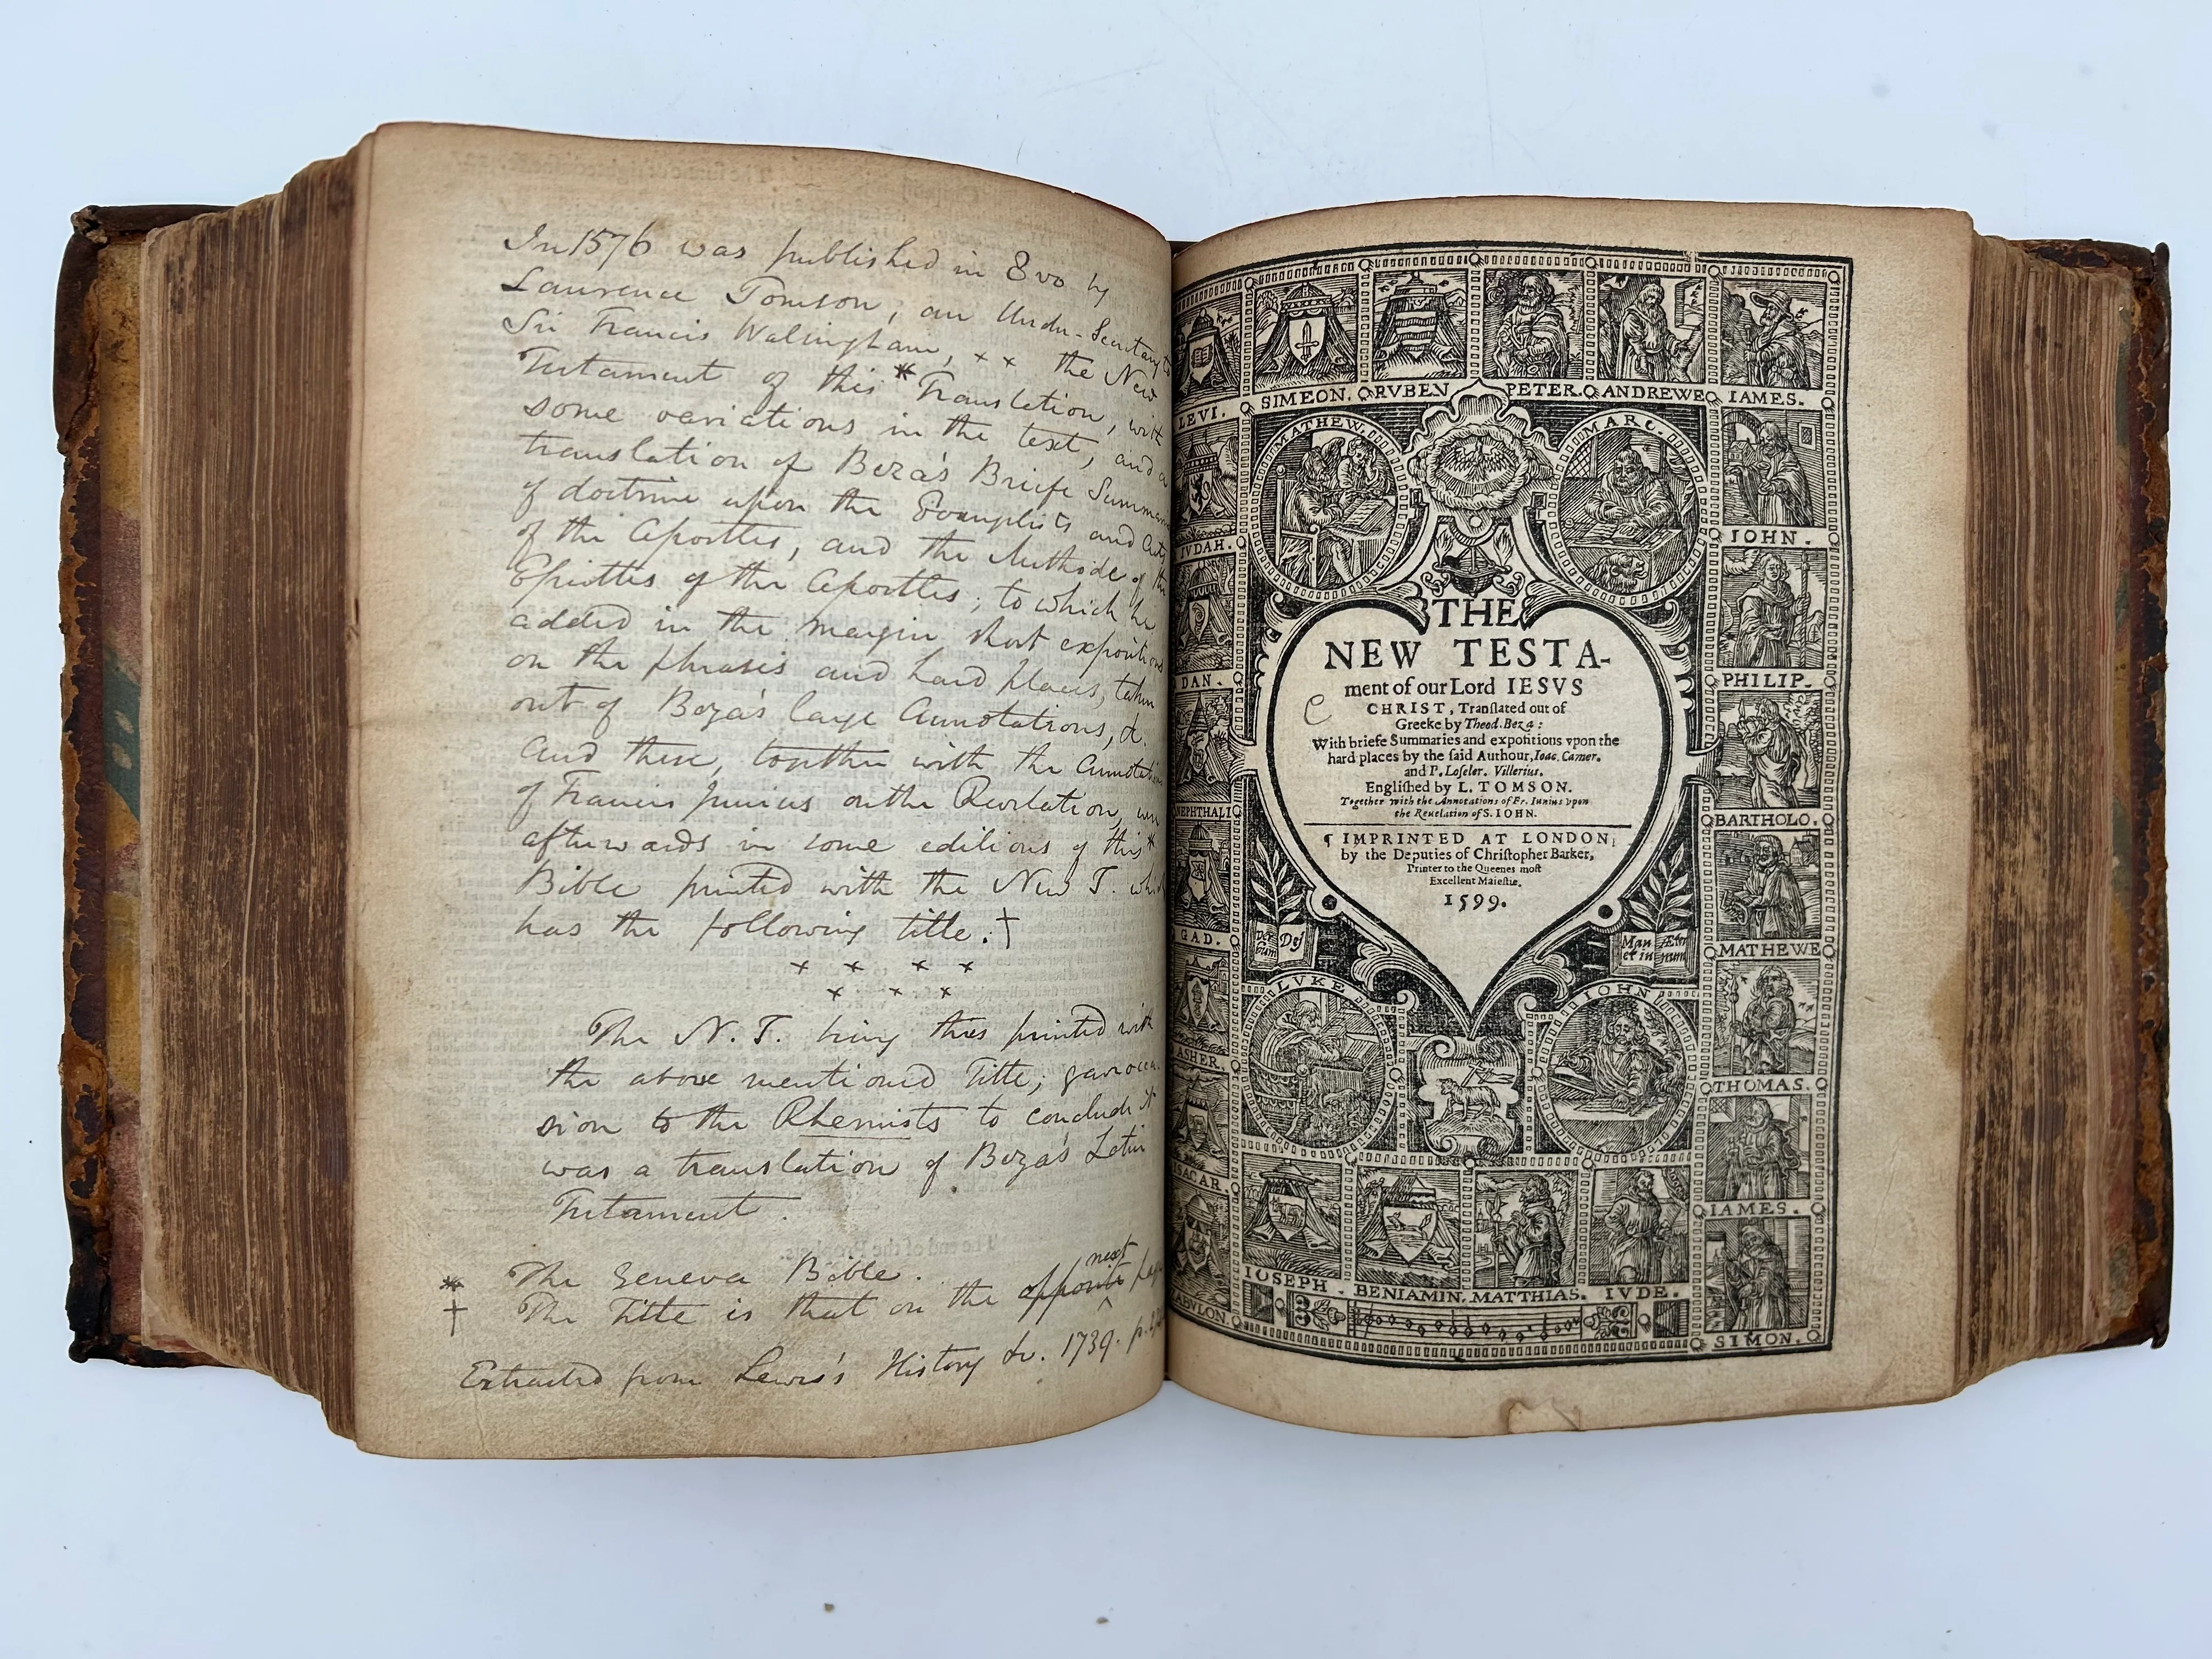 In 1576 was published in 8vo by
Laurence Tomson, an Under-Secretary to
Sir Francis Walsingham, × × the New
Testament of this * Translation, with
some variations in the text, and a
translation of Beza's Briefe Summar
of doctrine upon the Evangelists and Acts
of the Apostles, and the Methode of the
Epistles of the Apostles; to which he
added in the margin short expositions
on the phrases and hard places, taken
out of Beza's large Annotations, &.
And these, together with the Annotati
of Francis Junius on the Revelation, were
afterwards in some editions of this *
Bible printed with the New T. which
has the following title. †
× × × ×
× × ×
The N. T. being thus printed with
the above mentioned Title; gave occa
sion to the Rhemists to conclude it
was a translation of Beza's Latin
Testament.
* The Geneva Bible.
next
† The Title is that on the opposite page
Extracted from Lewis's History &c. 1739. p.
LEVI. SIMEON. RVBEN PETER. ANDREWE IAMES.
MATHEW.
MARC.
IVDAH.
IOHN.
DAN.
PHILIP.
NEPHTHALI
BARTHOLO.
GAD.
MATHEWE
ASHER.
THOMAS.
ISACAR.
IAMES.
ZABVLON.
SIMON.
THE
NEW TESTA-
ment of our Lord IESVS
CHRIST, Tranſlated out of
Greeke by Theod. Beza:
With briefe Summaries and expoſitions vpon the
hard places by the ſaid Authour, Ioac. Camer.
and P. Loſeler. Villerius.
Engliſhed by L. TOMSON.
Together with the Annotations of Fr. Iunius vpon
the Reuelation of S. IOHN.
¶ IMPRINTED AT LONDON,
by the Deputies of Chriſtopher Barker,
Printer to the Queenes moſt
Excellent Maieſtie.
1599.
Ver Dei
bum
Man Æter
et in num
LVKE
IOHN
IOSEPH. BENIAMIN. MATTHIAS. IVDE.